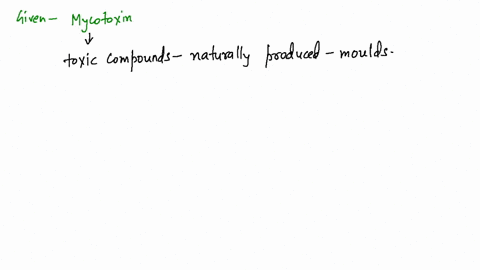 Given- Mycotoxin
toxic compounds- naturally produced - moulds.